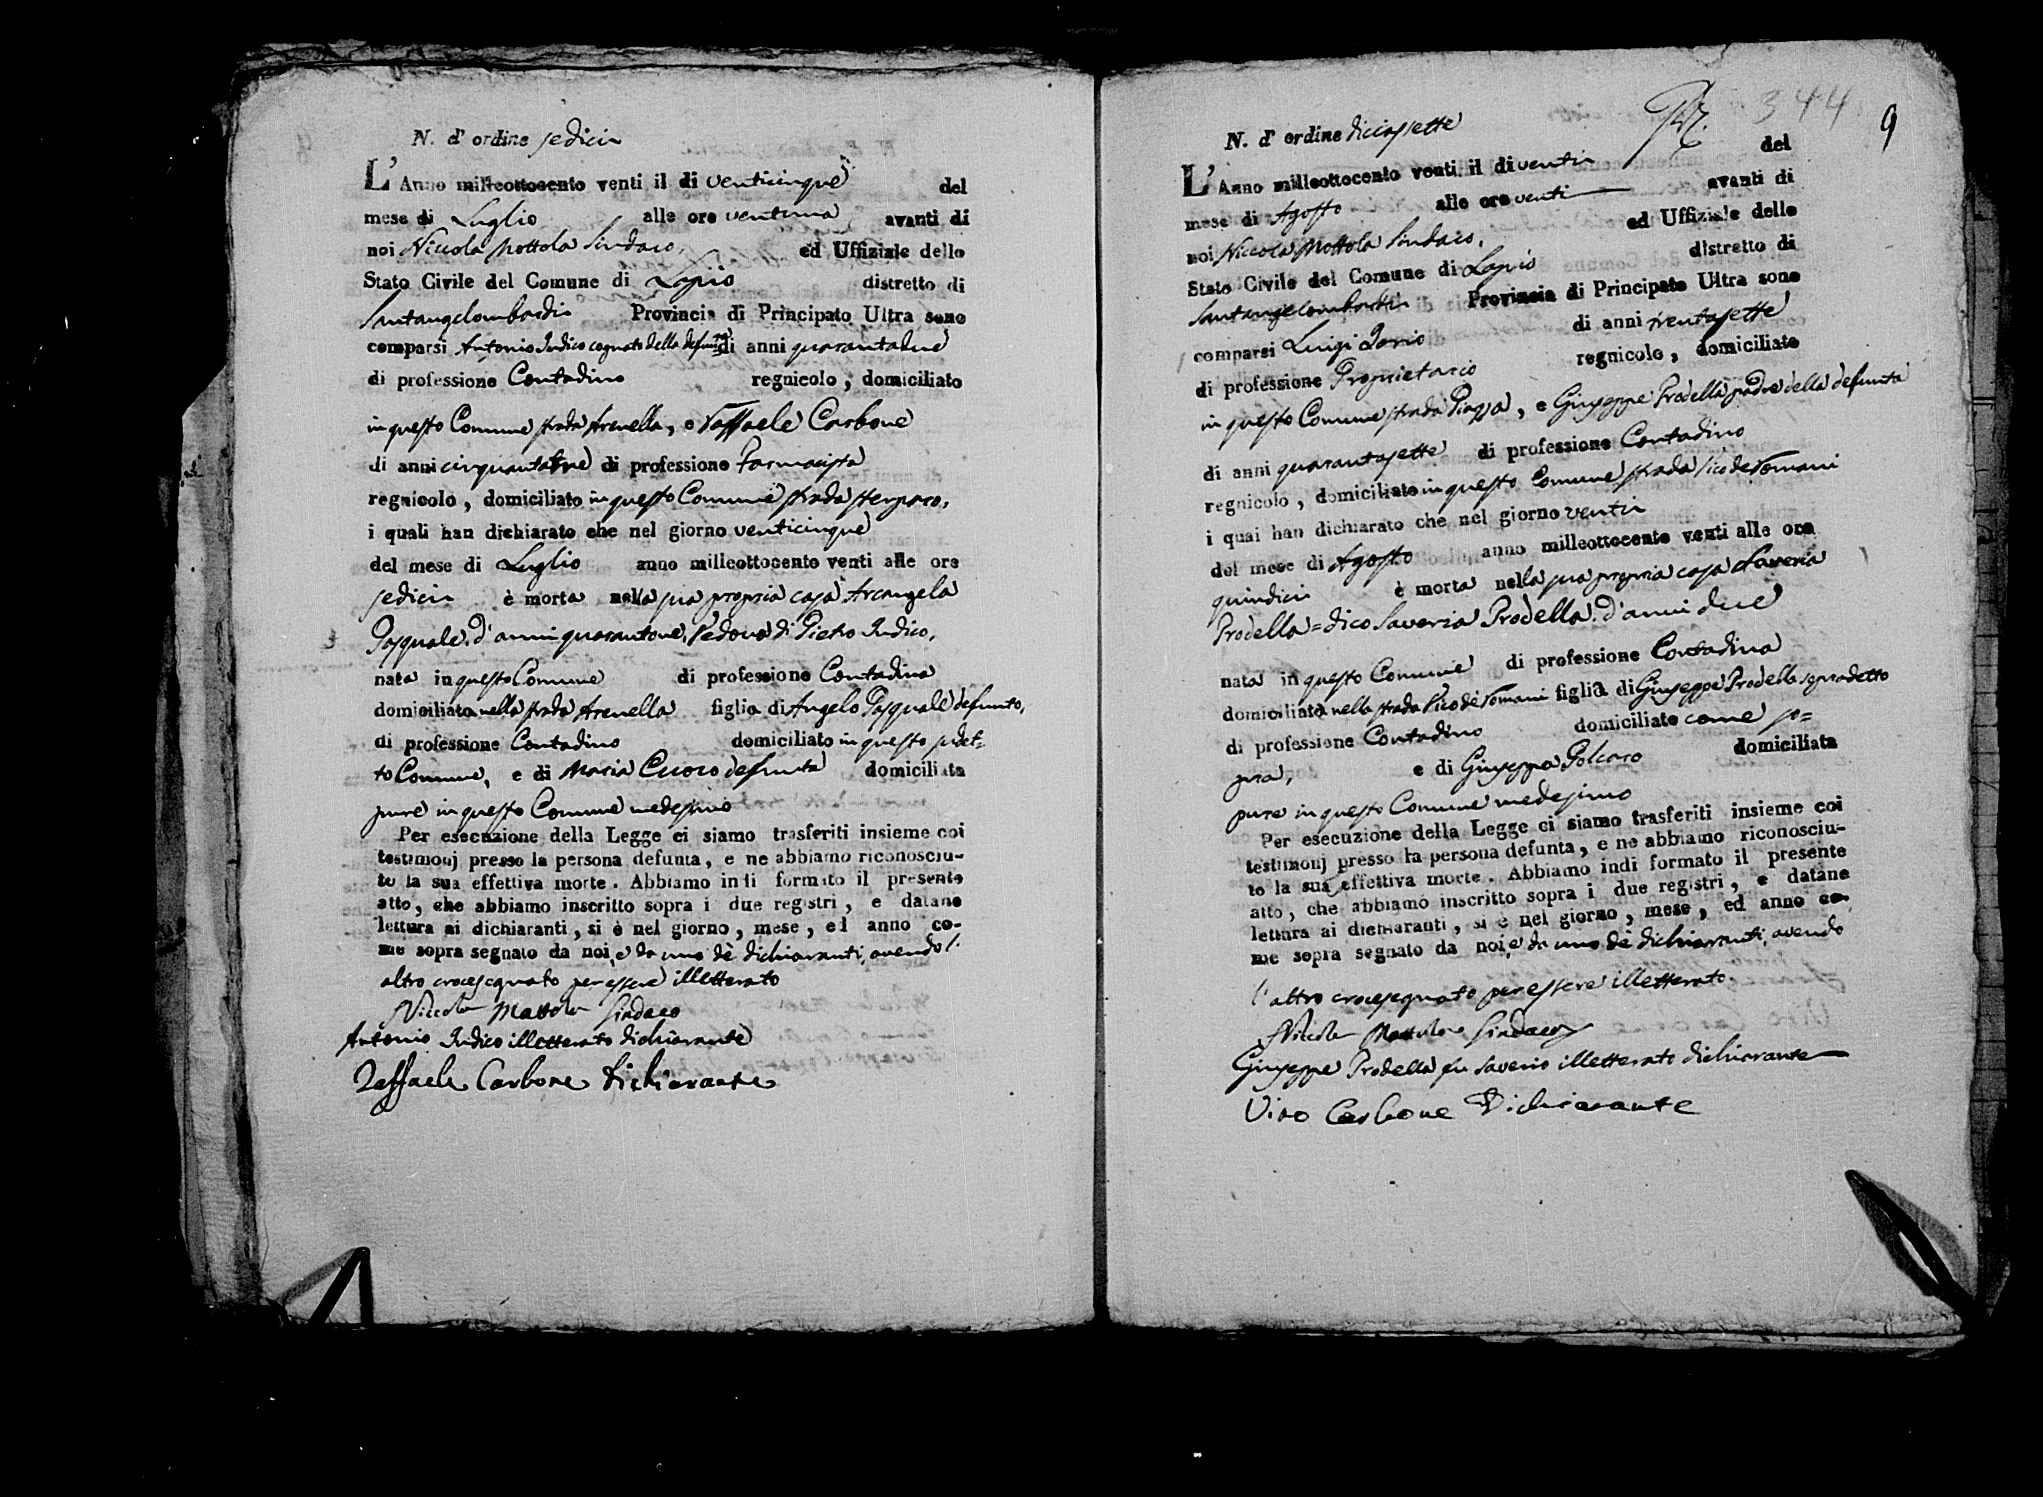 N. d' ordine sedici
L'Anno milleottocento venti il di venticinque del
mese di Luglio alle ore ventuna avanti di
noi Niccola Mottola Sindaco, ed Uffiziale dello
Stato Civile del Comune di Lapio distretto di
Santangelombardi Provincia di Principato Ultra sono
comparsi Antonio Iudico cognato della defunta di anni quarantadue
di professione Contadino regnicolo, domiciliato
in questo Comune strada Arenella, e Raffaele Carbone
di anni cinquantatre di professione Farmacista
regnicolo, domiciliato in questo Comune strada
i quali han dichiarato che nel giorno venticinque
del mese di Luglio anno milleottocento venti alle ore
sedici è morta nella sua propria casa Arcangela
Pasquale d'anni quarantove, Vedova di Pietro Iudico,
nata in questo Comune di professione Contadina
domiciliata nella strada Arenella figlia di Angelo Pasquale defunto,
di professione Contadino domiciliato in questo sudet=
to Comune, e di Maria Cuoco defunta domiciliata
pure in questo Comune medesimo
Per esecuzione della Legge ci siamo trasferiti insieme coi
testimonj presso la persona defunta, e ne abbiamo riconosciu-
to la sua effettiva morte. Abbiamo indi formato il presente
atto, che abbiamo inscritto sopra i due registri, e datane
lettura ai dichiaranti, si è nel giorno, mese, ed anno co-
me sopra segnato da noi, e da uno dè dichiaranti, avendo l'
altro crocesegnato per essere illetterato
Niccola Mottola Sindaco
Antonio Iudico illetterato dichiarante
Raffaele Carbone dichiarante
344
9
N. d' ordine diciassette
L'Anno milleottocento venti il di venti del
mese di Agosto alle ore venti avanti di
noi Niccola Mottola Sindaco, ed Uffiziale dello
Stato Civile del Comune di Lapio distretto di
Santangelombardi Provincia di Principato Ultra sono
comparsi Luigi di anni trentasette
di professione Proprietario regnicolo, domiciliato
in questo Comune strada Piazza, e Giuseppe Prodella padre della defunta
di anni quarantasette di professione Contadino
regnicolo, domiciliato in questo Comune strada Vico de Romani
i quai han dichiarato che nel giorno venti
del mese di Agosto anno milleottocento venti alle ore
quindici è morta nella sua propria casa Saveria
Prodella = dico Saveria Prodella d'anni due
nata in questo Comune di professione Contadina
domiciliata nella strada Vico dè Romani figlia di Giuseppe Prodella sopradetto
di professione Contadino domiciliato come so=
pra, e di Giuseppa Polcaro domiciliata
pure in questo Comune medesimo
Per esecuzione della Legge ci siamo trasferiti insieme coi
testimonj presso la persona defunta, e ne abbiamo riconosciu-
to la sua effettiva morte. Abbiamo indi formato il presente
atto, che abbiamo inscritto sopra i due registri, e datane
lettura ai dichiaranti, si è nel giorno, mese, ed anno co-
me sopra segnato da noi, e da uno dè dichiaranti, avendo
l'altro crocesegnato per essere illetterato
Niccola Mottola Sindaco
Giuseppe Prodella fu Saverio illetterato dichiarante
Vito Carbone Dichiarante